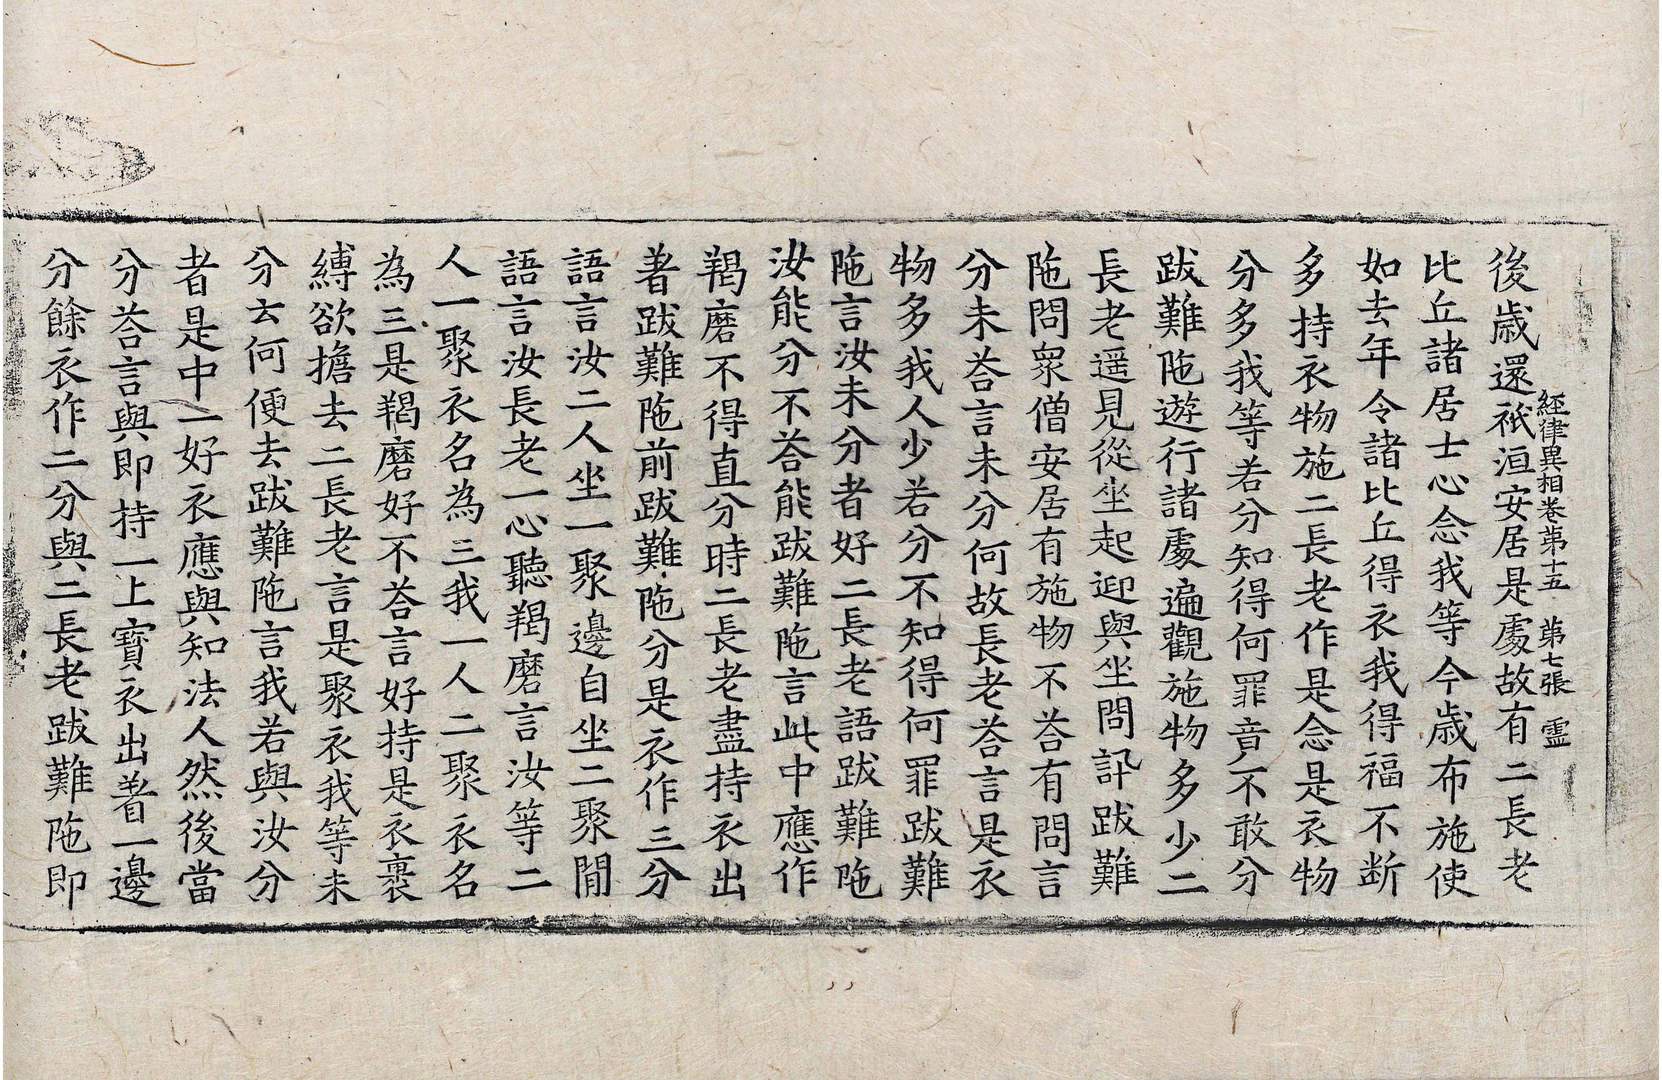 經律異相卷第十五 第七張 靈
後歲還祇洹安居是處故有二長老
比丘諸居士心念我等今歲布施使
如去年令諸比丘得衣我得福不断
多持衣物施二長老作是念是衣物
分多我等若分知得何罪音不敢分
跋難陁遊行諸處遍觀施物多少二
長老遥見從坐起迎與坐問訊跋難
陁問衆僧安居有施物不荅有問言
分未荅言未分何故長老荅言是衣
物多我人少若分不知得何罪跋難
陁言汝未分者好二長老語跋難陁
汝能分不荅能跋難陁言此中應作
羯磨不得直分時二長老盡持衣出
著跋難陁前跋難陁分是衣作三分
語言汝二人坐一聚邊自坐二聚間
語言汝長老一心聽羯磨言汝等二
人一聚衣名為三我一人二聚衣名
為三是羯磨好不荅言好持是衣裹
縛欲擔去二長老言是聚衣我等未
分云何便去跋難陁言我若與汝分
者是中一好衣應與知法人然後當
分荅言與即持一上寶衣出著一邊
分餘衣作二分與二長老跋難陁即